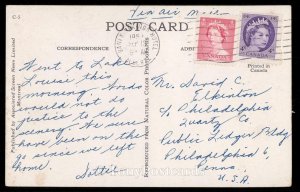 Via air mail
C-5
POST CARD
CORRESPONDENCE
ADDRESS
Printed in
Canada
Went to Lake
Louise this
morning. Words
do not do
justice to the
scenery. We sure
have been on the
go since we left
home.
Lottie
Mr. David C.
Elkinton
c/o Philadelphia
Quartz Co
Public Ledger Bldg
Philadelphia 6
Penna.
U.S.A.
Published by Associated Screen News Limited
Montreal
REPRODUCED FROM NATURAL COLOR PHOTOGRAPH